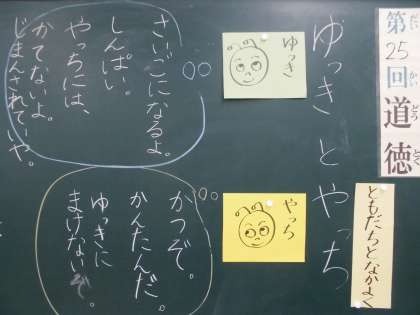 第25回道徳
だい かい どうとく
ともだちとなかよく
ゆっきとやっち
ゆっき
さいごになるよ。
しんぱい。
やっちには、
かてないよ。
じまんされていや。
やっち
かつぞ。
かんたんだ。
ゆっきに
まけないぞ。